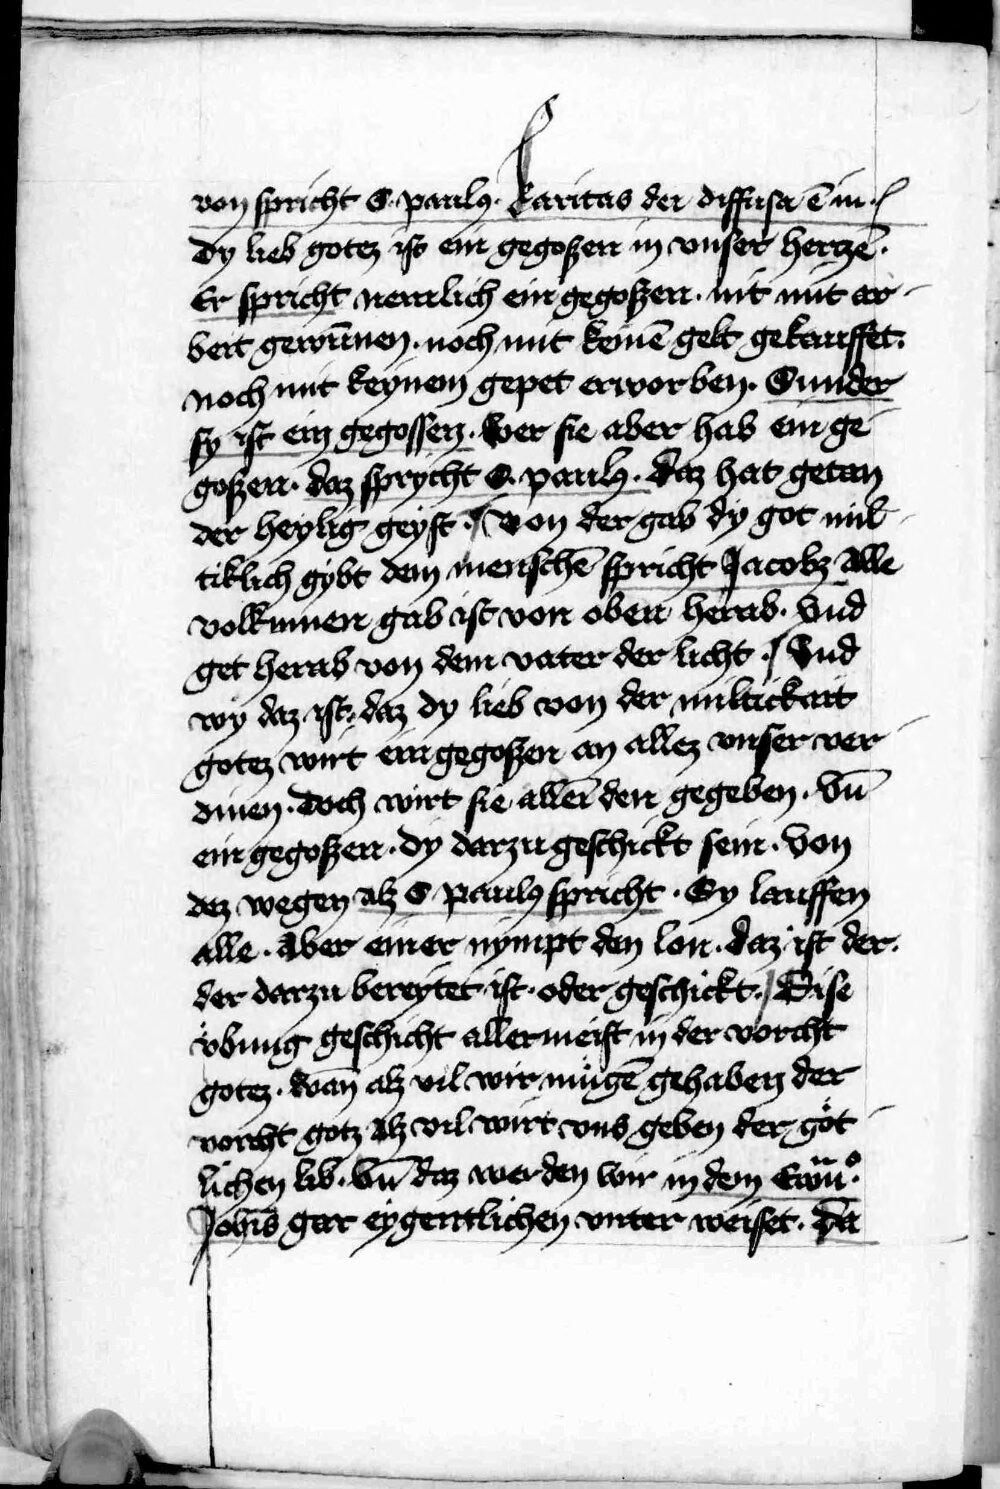 von spricht S. paulꝰ. Karitas dei diffusa ē in ·
dy lieb gotez ist ein gegoßen in vnser hertzē.
Er spricht nemlich ein gegoßen. nit mit ar-
beit gewūnen. noch mit keinē gelt gekauffet.
noch mit keynem gepet erworben. Sunder
sy ist ein gegossen. wer sie aber hab ein ge
goßen. daz sprycht S. paulꝰ. daz hat getan
der heylig geyst. Von der gab dy got mil-
tiklich gybt dem menschē spricht Jacobꝫ Alle
volkumen gab ist von oben herab. Vnd
get herab von dem vater der licht. Vnd
wy daz ist. daz dy lieb von der miltickait
gotez wirt ein gegoßen an allez vnser ver-
dinen. Doch wirt sie allein den gegeben. Vn̄
ein gegoßen. dy darzu geschickt sein. Von
dez wegen alz S. paulꝰ spricht. Sy lauffen
alle. Aber einer nympt den lon. daz ist der.
der darzu bereytet ist. oder geschickt. Dise
vbung geschicht allermeist in der vorcht
gotez. wan̄ alz vil wir mügē gehaben der
vorcht gotz alz vil wirt vns geben der göt-
lichen lib. Vn̄ daz werden wir in dem Ewū°.
Joh̄is gar eygentlichen vnter weiset. Da